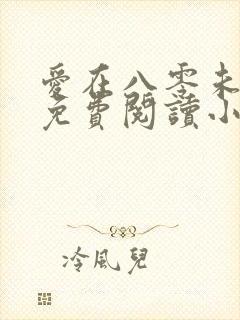 愛在八零未
免費閱讀小
冷風兒